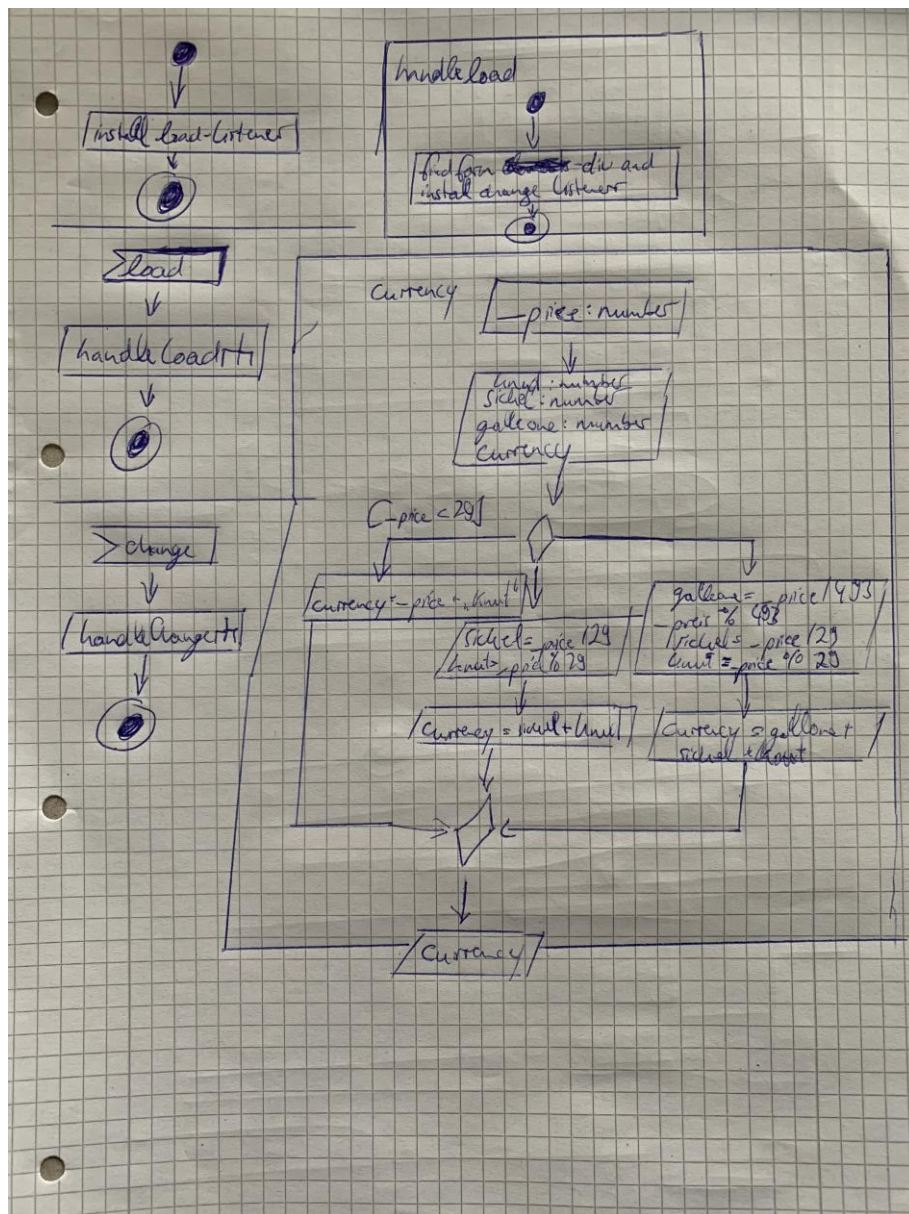 install load-listener
handleload
find form div and
install change listener
load
handleLoad
change
handleChange
Currency
_price: number
knud: number
sichel: number
galleone: number
Currency
[_price < 29]
Currency = _price + "Knut"
sichel = _price / 29
knut = _price % 29
Currency = sichel + knut
galleone = _price / 493
_preis % 493
sichel = _price / 29
knut = _price % 29
Currency = galleone +
sichel + knut
Currency